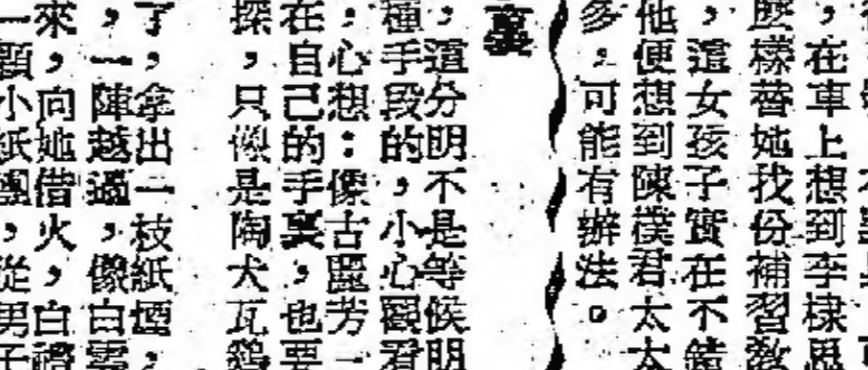 ，在車上想到李棣思
麽樣替她找份補習教
，這女孩子實在不錯
他便想到陳璞君太太
多，可能有辦法。
裏
，這分明不是等候明
種手段的，小心觀看
，心想：像古靈芳一
在自己的手裏，也要
探，只像是陶犬瓦鷄
了，拿出一枝紙煙，
，一陣越過，像白雲
來，向她借火，白禮
一顆小紙團，從男子